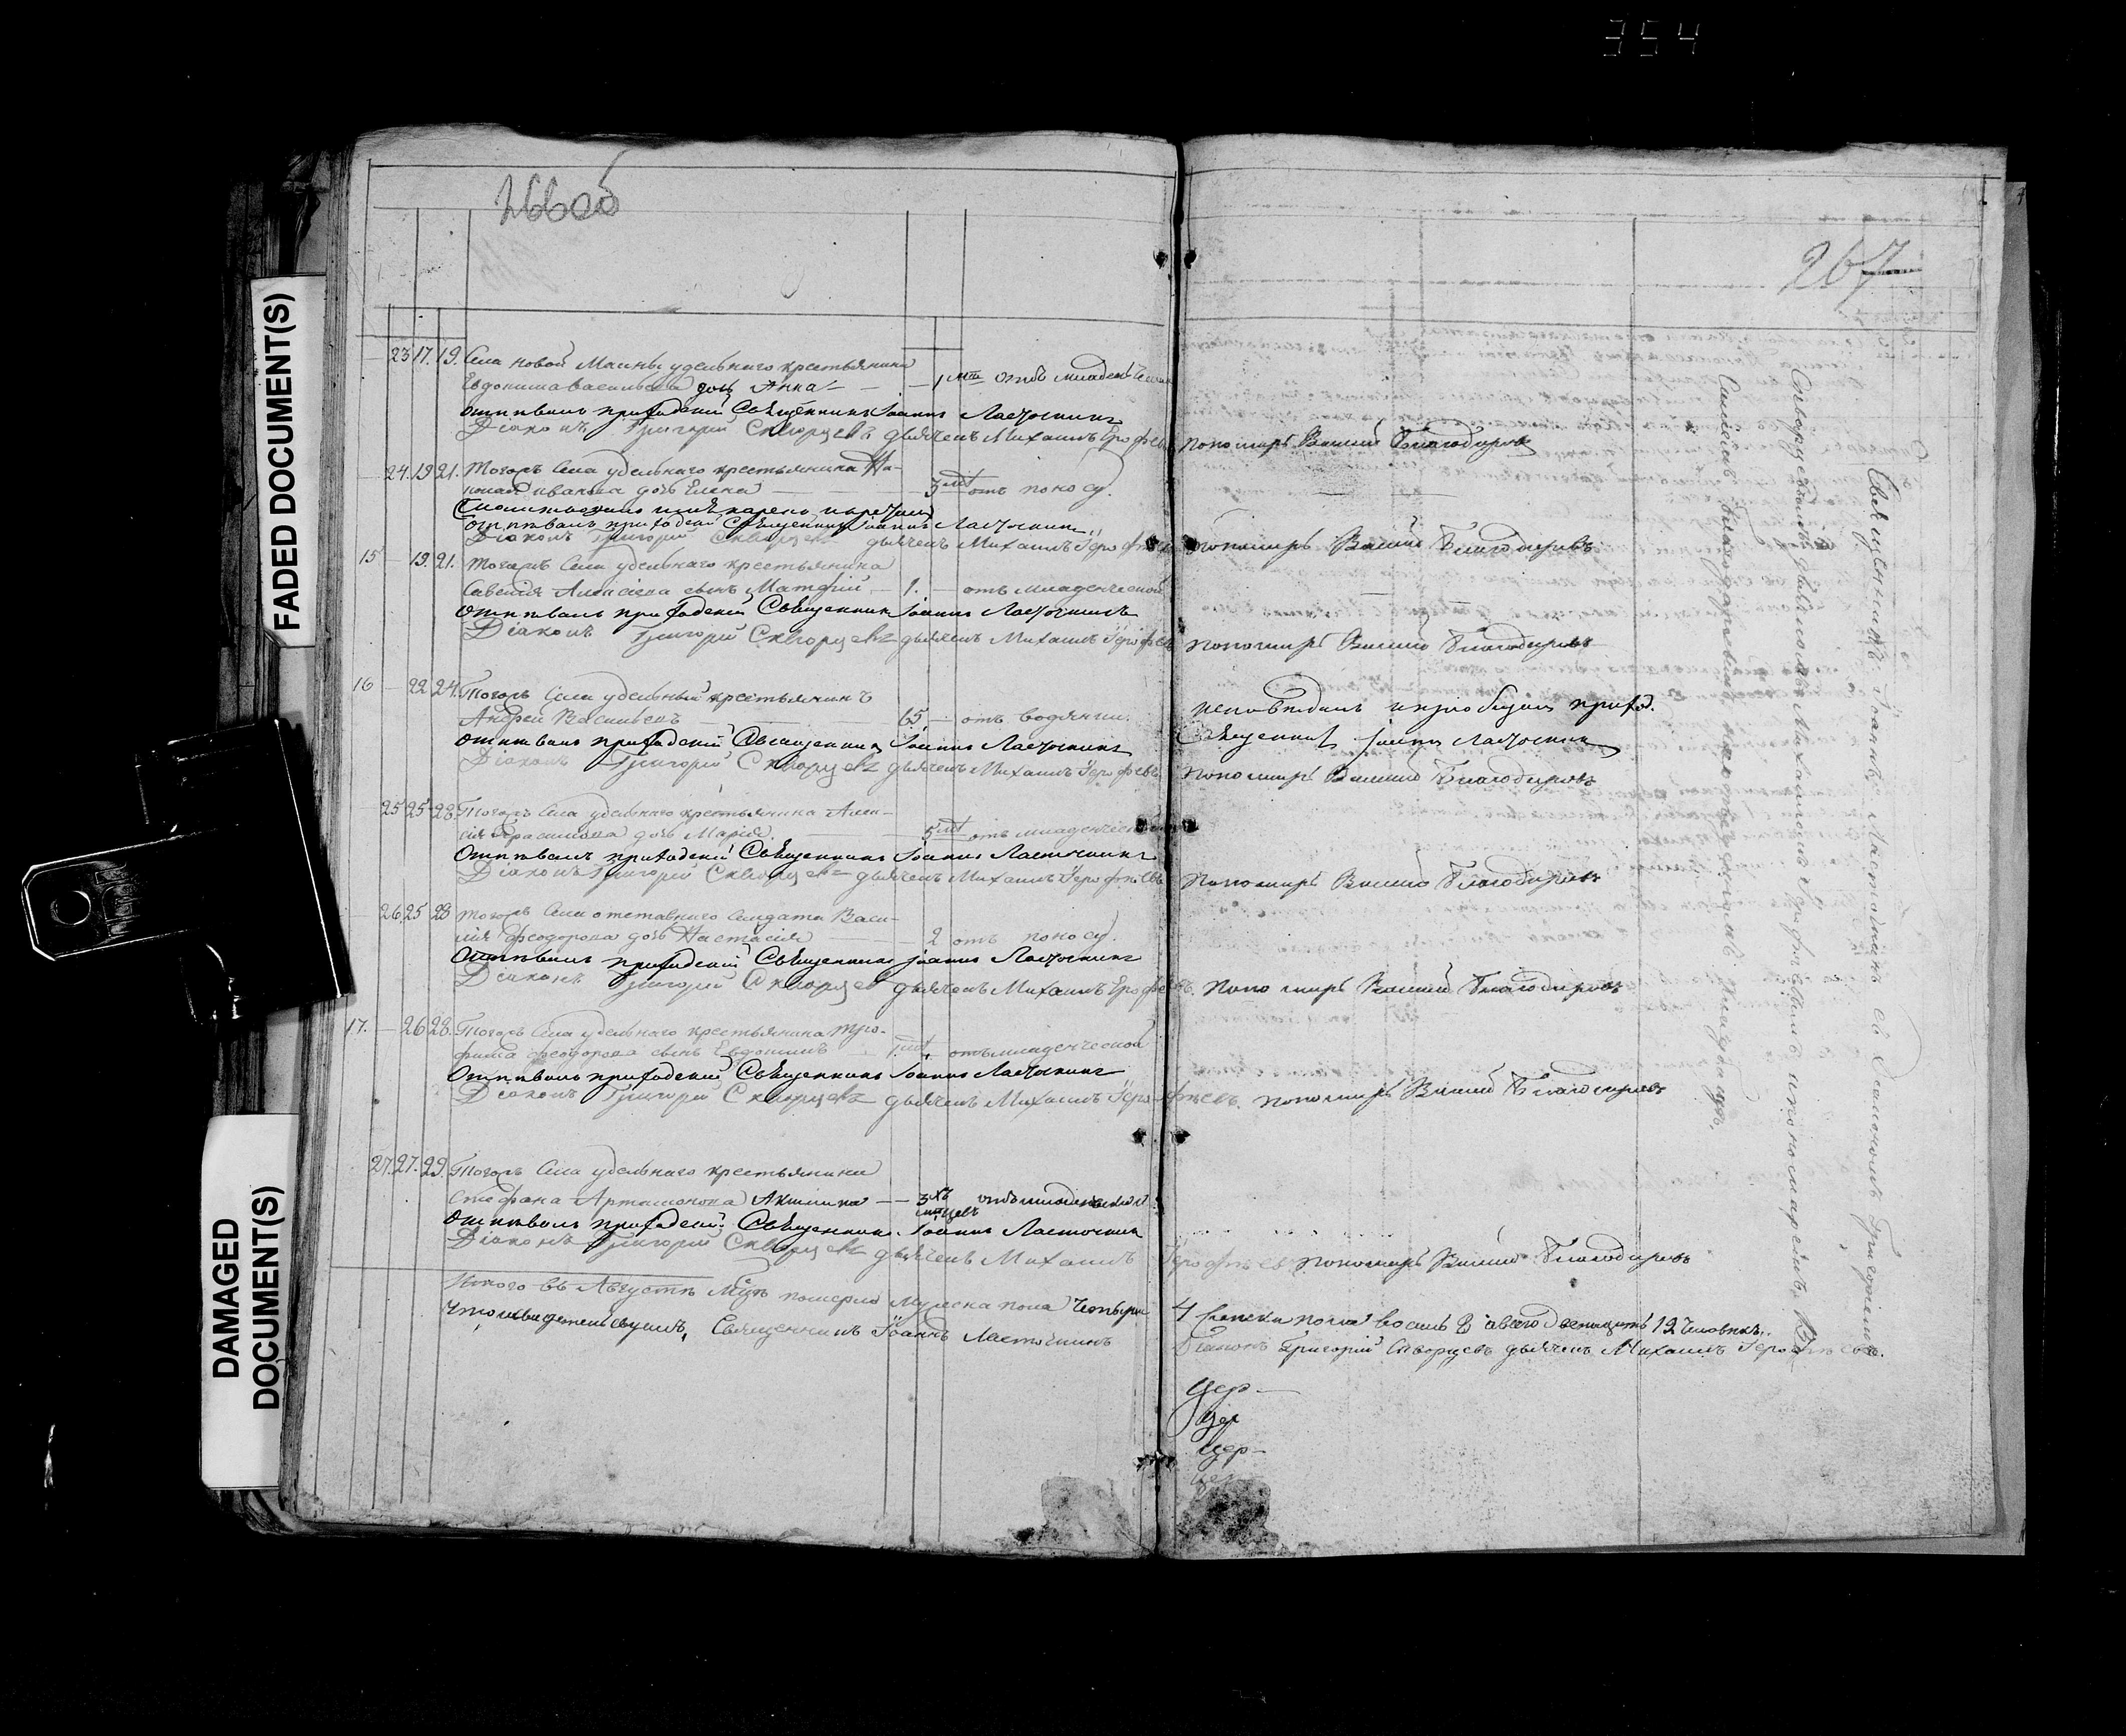 354
266об
267
FADED DOCUMENT(S)
DAMAGED DOCUMENT(S)
23 17. 19. Села новой Маины удельнаго крестьянина
Евдокима Васильева дочь Анна — 1 отъ младенческой
отпѣвалъ приходской Священникъ Іоаннъ Ласточкинъ
Діаконъ Григорій Скворцевъ дьячекъ Михаилъ Ерофѣевъ пономарь Василий Благодаровъ
24. 19 21. Тогожъ Села удельнаго крестьянина
Иванова дочь Елена — 3 отъ поносу.
отпѣвалъ приходской Священникъ Іоаннъ Ласточкинъ
Діаконъ Григорій Скворцевъ дьячекъ Михаилъ Ерофѣевъ пономарь Василий Благодаровъ
15 — 19. 21. Тогожъ Села удельнаго крестьянина
Савелія Алексѣева сынъ Матфій — 1. — отъ младенческой
отпѣвалъ приходской Священникъ Іоаннъ Ласточкинъ
Діаконъ Григорій Скворцевъ дьячекъ Михаилъ Ерофѣевъ пономарь Василий Благодаровъ
16 — 22 24. Тогожъ Села удельный крестьянинъ
Андрей Васильевъ — 65 — отъ водянки. исповѣдалъ и приобщалъ приход.
отпѣвалъ приходской Священникъ Іоаннъ Ласточкинъ Священникъ Іоаннъ Ласточкинъ
Діаконъ Григорій Скворцевъ дьячекъ Михаилъ Ерофѣевъ пономарь Василий Благодаровъ
25 25 28. Тогожъ Села удельнаго крестьянина Алек-
сія Герасимова дочь Марія. — 5 отъ младенческой
Отпѣвалъ приходской Священникъ Іоаннъ Ласточкинъ
Діаконъ Григорій Скворцевъ дьячекъ Михаилъ Ерофѣевъ пономарь Василий Благодаровъ
26. 25 28 Тогожъ Села отставнаго Солдата Васи-
лія Феодорова дочь Настасія — 2 отъ поносу.
Отпѣвалъ приходской Священникъ Іоаннъ Ласточкинъ
Діаконъ Григорій Скворцевъ дьячекъ Михаилъ Ерофѣевъ. пономарь Василий Благодаровъ
17. — 26 28. Тогожъ Села удельнаго крестьянина Тро-
фима Феодорова сынъ Евдокимъ — 1 отъ младенческой
Отпѣвалъ приходской Священникъ Іоаннъ Ласточкинъ
Діаконъ Григорій Скворцевъ дьячекъ Михаилъ Ерофѣевъ. пономарь Василий Благодаровъ
27. 27. 29. Тогожъ Села удельнаго крестьянина
Стефана Артамонова Акилина — 3 отъ младенческой
отпѣвалъ приходской Священникъ Іоаннъ Ласточкинъ
Діаконъ Григорій Скворцевъ дьячекъ Михаилъ Ерофѣевъ пономарь Василий Благодаровъ
Итого въ Августѣ мцѣ померло Мужеска пола Четыре 4 женска пола восемь 8 а всего двенадцать 12 Человѣкъ.
Что и свидетельствуемъ, Священникъ Іоаннъ Ласточкинъ Діаконъ Григорій Скворцевъ дьячекъ Михаилъ Ерофѣевъ.
Цер-
Цер
Цер-
Цер
Священникъ Іоаннъ Ласточкинъ съ Діакономъ Григоріемъ
Скворцевымъ дьячкомъ Михаиломъ Ерофѣевымъ и пономаремъ, В